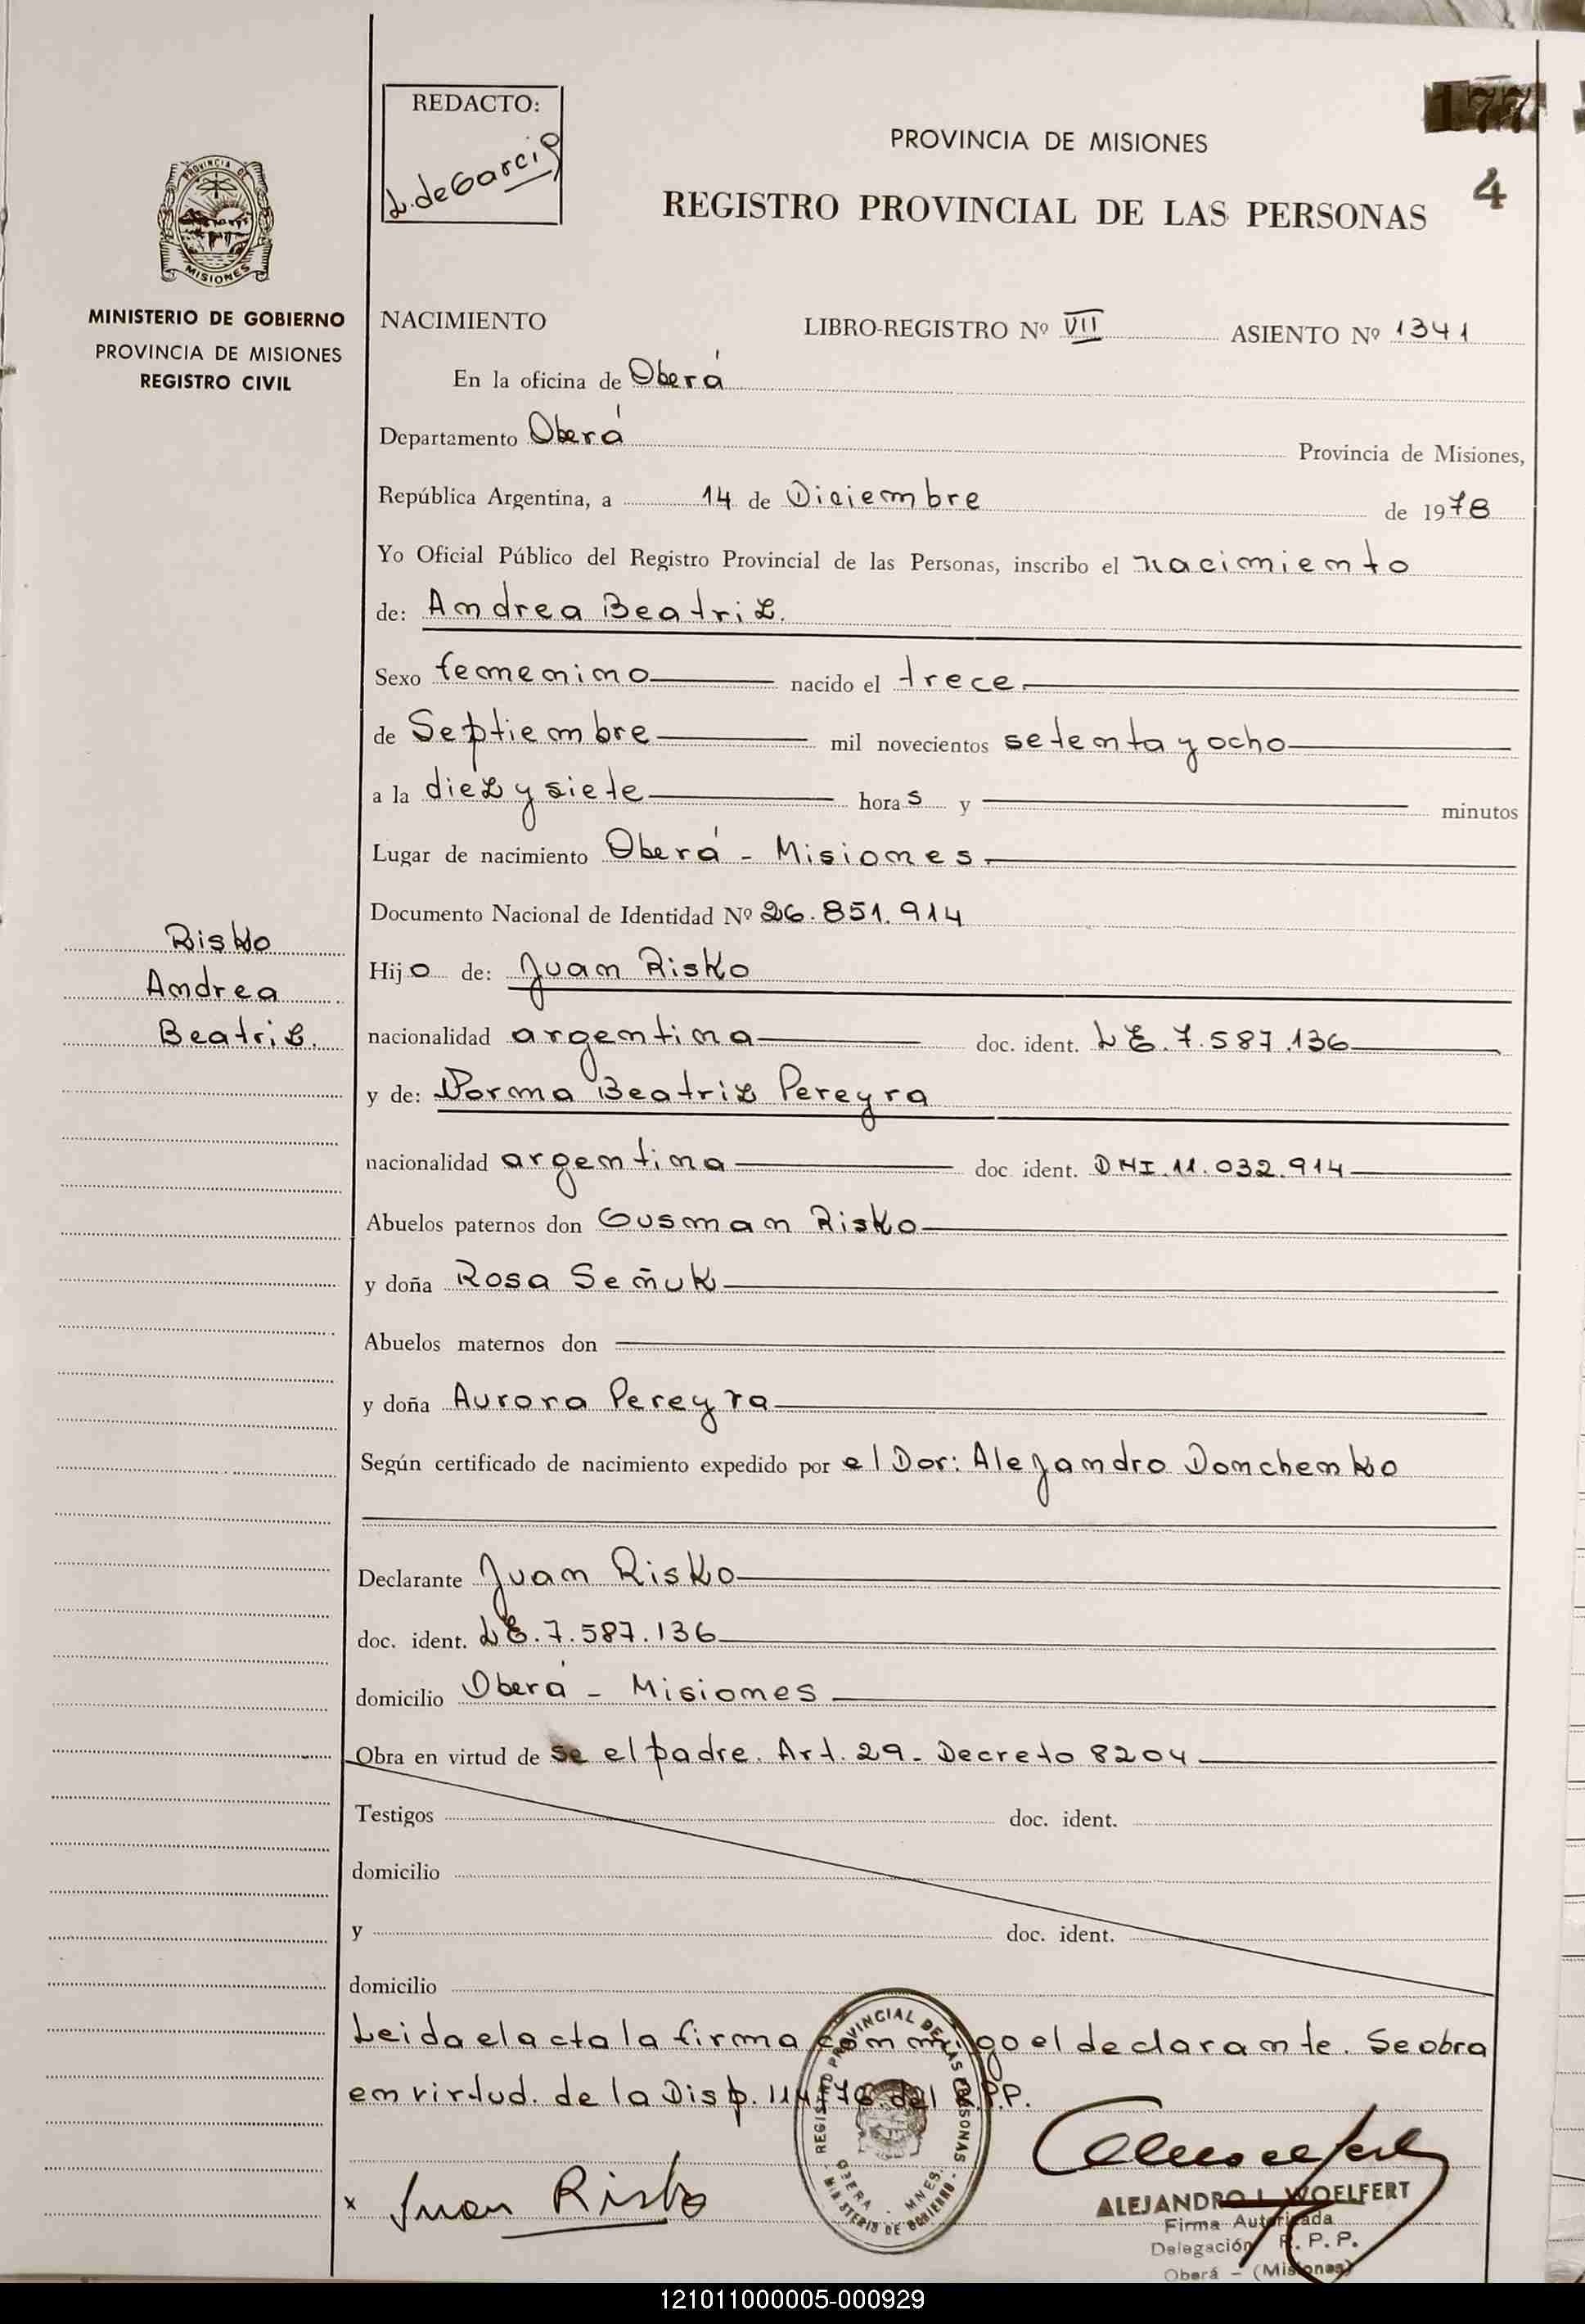 REDACTO:
L. de Garcia
177
PROVINCIA DE MISIONES
4
REGISTRO PROVINCIAL DE LAS PERSONAS
PROVINCIA DE
MISIONES
MINISTERIO DE GOBIERNO
PROVINCIA DE MISIONES
REGISTRO CIVIL
NACIMIENTO LIBRO-REGISTRO Nº VII ASIENTO Nº 1341
En la oficina de Oberá
Departamento Oberá Provincia de Misiones,
República Argentina, a 14 de Diciembre de 1978
Yo Oficial Público del Registro Provincial de las Personas, inscribo el nacimiento
de: Andrea Beatriz.
Sexo femenino nacido el trece
de Septiembre mil novecientos setenta y ocho
a la diez y siete horas y minutos
Lugar de nacimiento Oberá - Misiones.
Documento Nacional de Identidad Nº 26.851.914
Risko
Andrea
Beatriz.
Hijo de: Juan Risko
nacionalidad argentina doc. ident. LE. 7.587.136
y de: Norma Beatriz Pereyra
nacionalidad argentina doc. ident. DNI. 11.032.914
Abuelos paternos don Gusman Risko
y doña Rosa Señuk
Abuelos maternos don
y doña Aurora Pereyra
Según certificado de nacimiento expedido por el Dor: Alejandro Donchenko
Declarante Juan Risko
doc. ident. LE. 7.587.136
domicilio Oberá - Misiones
Obra en virtud de se el padre. Art. 29 - Decreto 8204
Testigos doc. ident.
domicilio
y doc. ident.
domicilio
Leida el acta la firma conmigo el declarante. Se obra
en virtud. de la Disp. 114/76 del R.P.P.
REGISTRO PROVINCIAL DE LAS PERSONAS
OBERA - MNES.
MINISTERIO DE GOBIERNO
x Juan Risko
ALEJANDRO L. WOELFERT
Firma Autorizada
Delegación R. P. P.
Oberá - (Misiones)
121011000005-000929